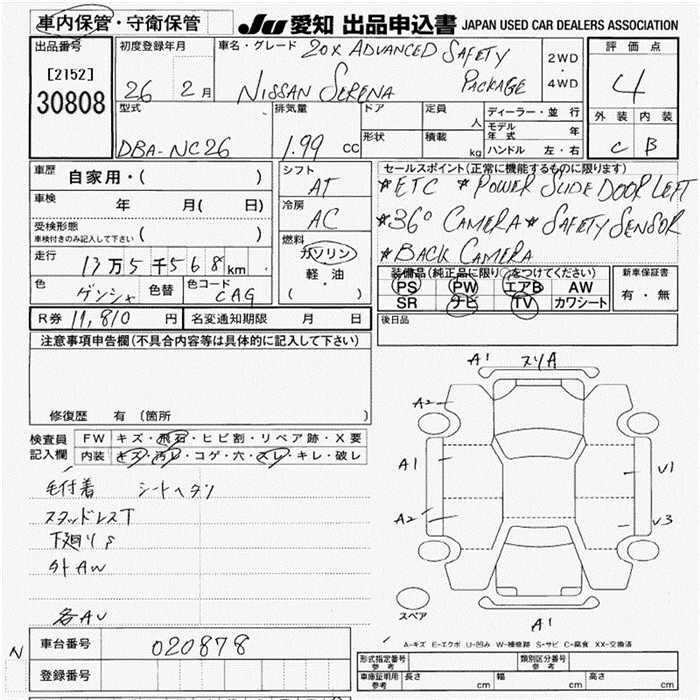 車内保管・守衛保管 JU 愛知 出品申込書 JAPAN USED CAR DEALERS ASSOCIATION
出品番号
[2152]
30808
初度登録年月
26 年 2 月
車名・グレード 20X ADVANCED SAFETY
NISSAN SERENA PACKAGE
2WD
・
4WD
評価点
4
外装 内装
C B
型式
DBA-NC26
排気量
1.99 cc
ドア
形状
定員 人
積載 kg
ディーラー・並行
モデル年式 年
ハンドル 左・右
車歴 自家用・( )
車検 年 月( 日)
受検形態
車検付きのみ記入して下さい ( )
走行 13万5千568km
色 ゲンシャ 色替 色コード CAG
R券 11,810 円 名変通知期限 月 日
シフト
AT
冷房
AC
燃料
ガソリン
軽・油
( ・ )
セールスポイント(正常に機能するものに限ります)
*ETC *POWER SLIDE DOOR LEFT
*360 CAMERA *SAFETY SENSOR
*BACK CAMERA
装備品(純正品に限り○をつけてください)
PS PW エアB AW
SR ナビ TV カワシート
新車保証書
有・無
後日品
注意事項申告欄(不具合内容等は具体的に記入して下さい)
修復歴 有 〔箇所 〕
検査員記入欄
FW キズ・飛石・ヒビ割・リペア跡・X要
内装 キズ・汚レ・コゲ・穴・スレ・キレ・破レ
毛付着 シートヘタリ
スタッドレスT
下廻りS
外AW
各AU
A1 スリA
A2
A1 U1
A2 U3
スペア
A1
A-キズ E-エクボ U-凹み W-補修跡 S-サビ C-腐食 XX-交換済
N
車台番号 020878
登録番号
形式指定番号 参考 類別区分番号 参考
車庫証明用 参考 長さ cm 幅 cm 高さ cm